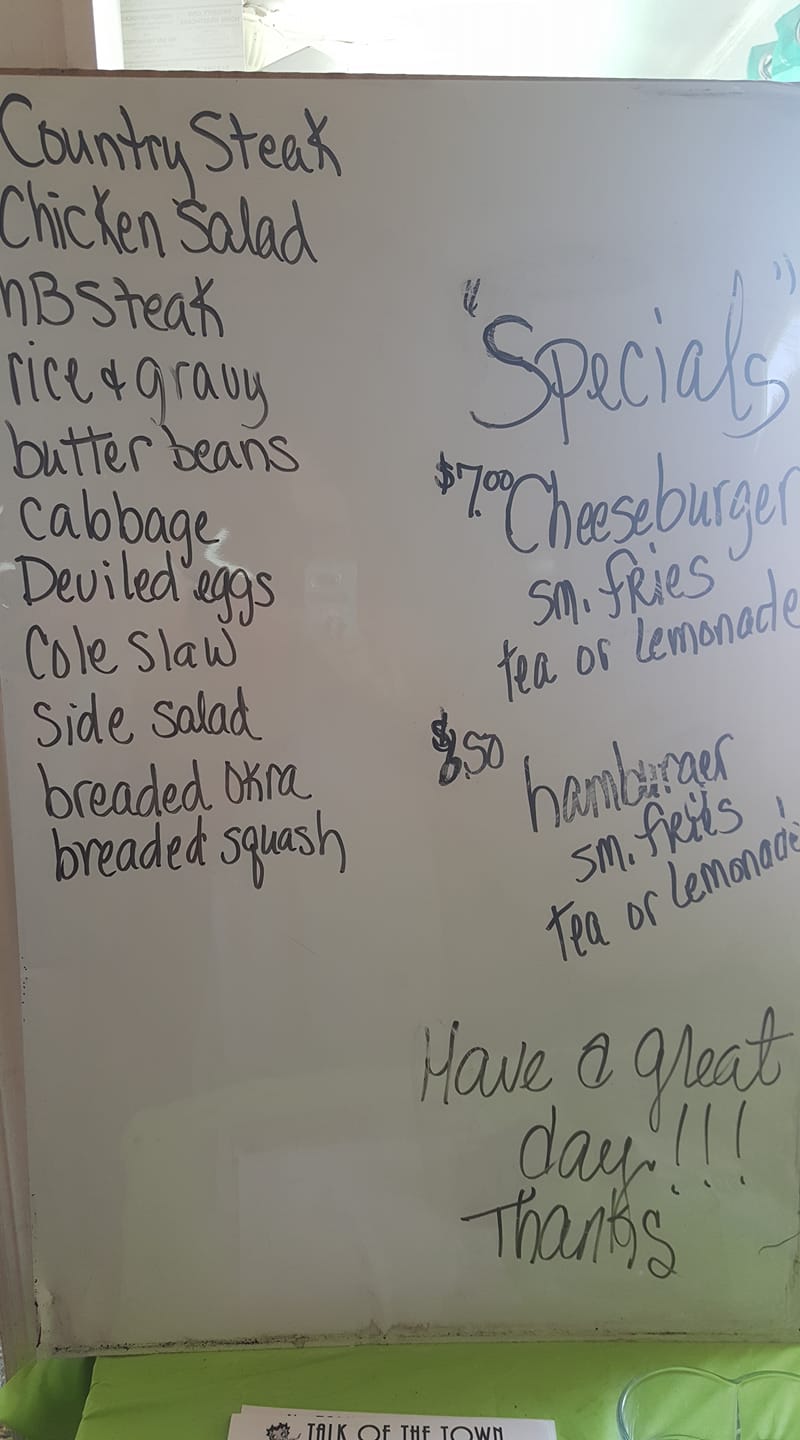 Country Steak
Chicken Salad
HB Steak
rice & gravy
butter beans
Cabbage
Deviled eggs
Cole Slaw
Side salad
breaded okra
breaded squash
"Specials"
$7.00 Cheeseburger
sm. fries
tea or lemonade
$6.50 hamburger
sm. fries
tea or lemonade
Have a great
day!!!
Thanks
TALK OF THE TOWN